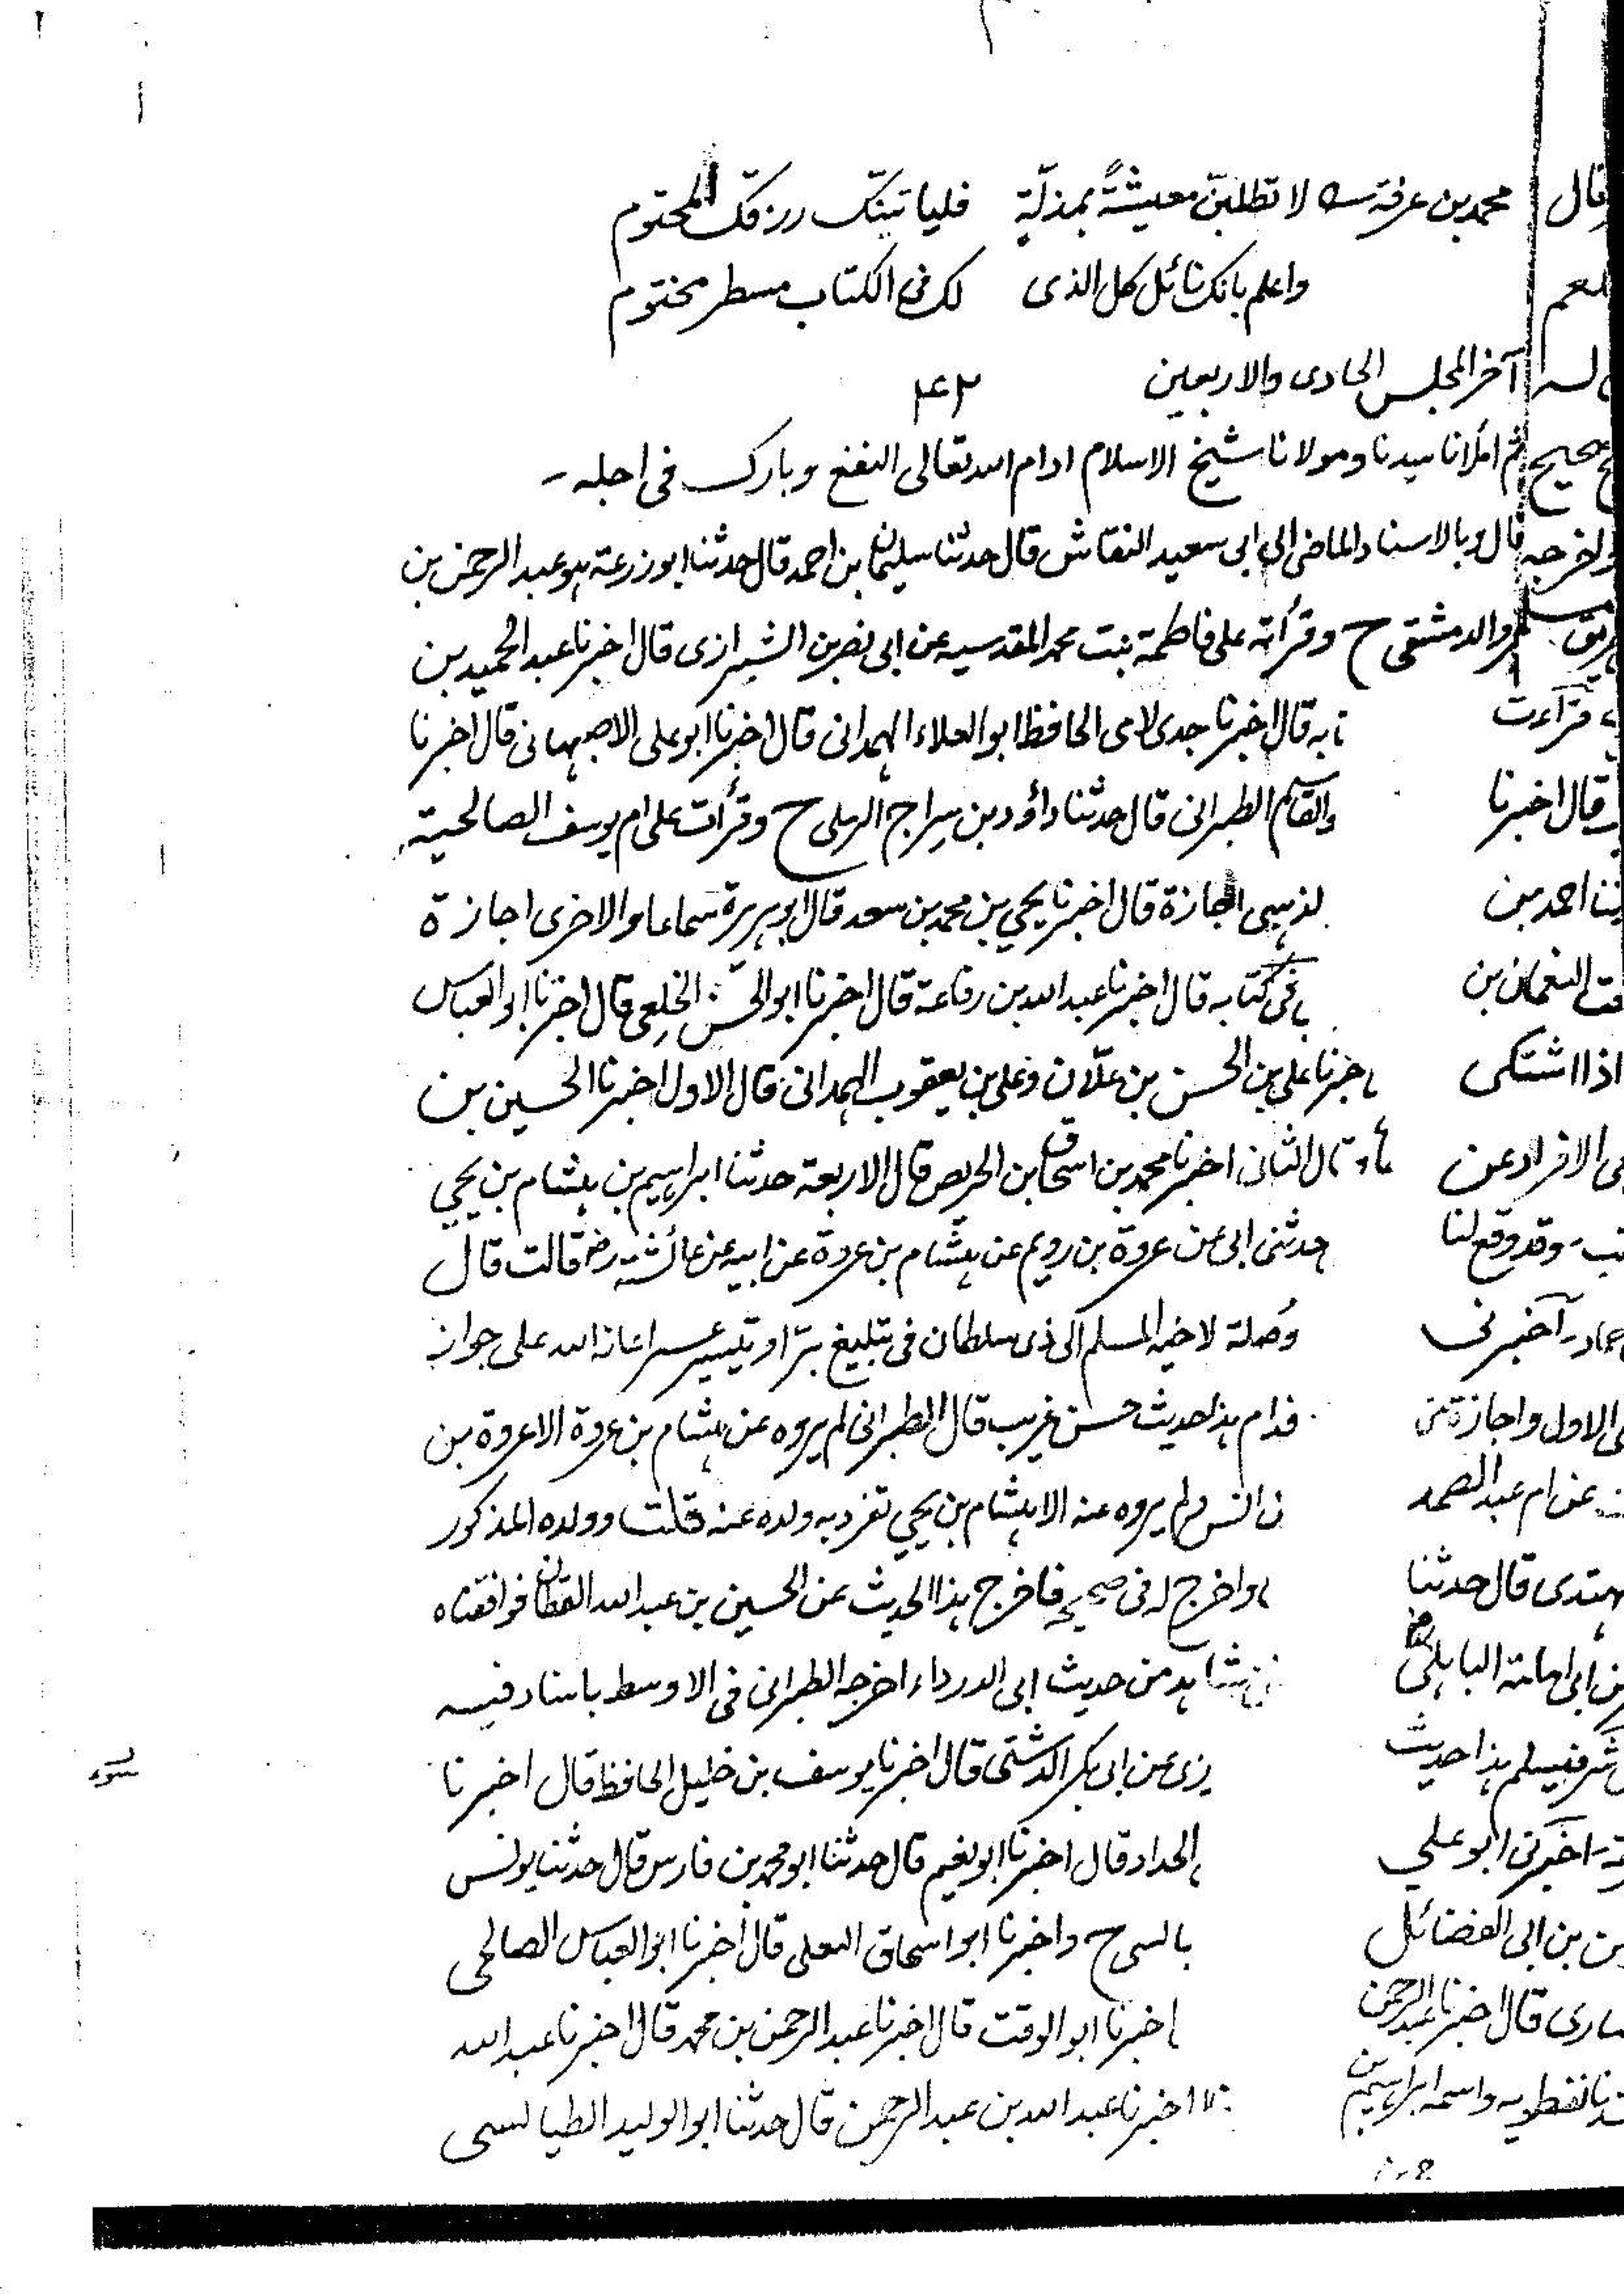 محمد بن عرفة لا تطلبن معيشةً بمذلّةٍ فلياتينّك رزقك المحتوم
واعلم بانك نائل كل الذى لك فى الكتاب مسطر مختوم
آخر المجلس الحادى والاربعين ٤٢
ثم املانا سيدنا ومولانا شيخ الاسلام ادام الله تعالى النفع وبارك فى اجله
قال وبالاسناد الماضى الى ابى سعيد النقاش قال حدثنا سليمان بن احمد قال حدثنا ابو زرعة هو عبد الرحمن بن
والدمشقى ح وقرأته على فاطمة بنت محمد المقدسيه عن ابى نصر بن الشيرازى قال اخبرنا عبد الحميد بن
به قال اخبرنا جدى لامى الحافظ ابو العلاء الهمدانى قال اخبرنا ابو على الاصبهانى قال اخبرنا
والقاسم الطبرانى قال حدثنا داؤد بن سراج الرملى ح وقرأت على ام يوسف الصالحية
لذهبى اجازة قال اخبرنا يحيي بن محمد بن سعد قال ابو هريرة سماعا والاخرى اجازة
فى كتابه قال اخبرنا عبد الله بن رفاعة قال اخبرنا ابو الحسن الخلعى قال اخبرنا ابو العباس
اخبرنا على بن الحسن بن علّان وعلى بن يعقوب الهمدانى قال الاول اخبرنا الحسين بن
قال الثانى اخبرنا محمد بن اسحاق بن الحريص قال الاربعة حدثنا ابراهيم بن هشام بن يحيي
حدثنى ابى عن عروة بن رويم عن هشام بن عروة عن ابيه عن عائشه رض قالت قال
وُصلة لاخيه المسلم الى ذى سلطان فى تبليغ برّ او تيسير عسر اعانه الله على جواز
قدام هذا حديث حسن غريب قال الطبرانى لم يروه عن هشام بن عروة الا عروة بن
ولم يروه عنه الا هشام بن يحيي تفرد به ولده عنه قلت وولده المذكور
واخرج له فى صحيحه فاخرج هذا الحديث عن الحسين بن عبد الله القطان فوافقناه
شاهد من حديث ابى الدرداء اخرجه الطبرانى فى الاوسط باسناد فيه
زى عن ابى بكر الدشتى قال اخبرنا يوسف بن خليل الحافظ قال اخبرنا
الحداد قال اخبرنا ابو نعيم قال حدثنا ابو محمد بن فارس قال حدثنا يونس
ح واخبرنا ابو اسحاق البعلى قال اخبرنا ابو العباس الصالحى
اخبرنا ابو الوقت قال اخبرنا عبد الرحمن بن محمد قال اخبرنا عبد الله
اخبرنا عبد الله بن عبد الرحمن قال حدثنا ابو الوليد الطيالسى
قال
صحيح
واخرجه
قرآءت
قال اخبرنا
احمد بن
النعمان بن
اذا اشتكى
الافراد عن
وقد وقع لنا
حماد آخبرنى
الاول واجازة من
عن ام عبد الصمد
مهتدى قال حدثنا
ابى امامة الباهلى رض
هذا حديث
اخبرنى ابو على
بن ابى الفضائل
قال اخبرنا عبد الرحمن
نفطويه واسمه ابراهيم بن